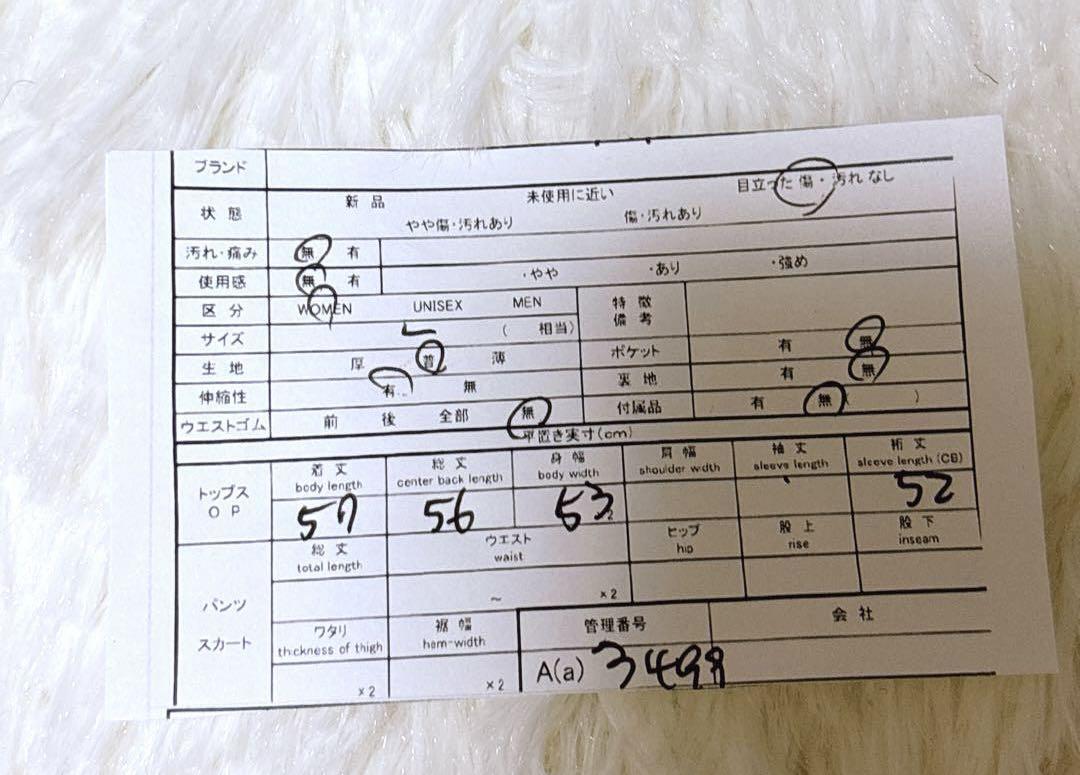 ブランド
状態 新品 未使用に近い 目立った傷・汚れなし
やや傷・汚れあり 傷・汚れあり
汚れ・痛み 無 有
使用感 無 有 ・やや ・あり ・強め
区分 WOMEN UNISEX MEN 特徴
備考
サイズ L ( 相当)
生地 厚 普 薄 ポケット 有 無
伸縮性 有 無 裏地 有 無
ウエストゴム 前 後 全部 無 付属品 有 無 ( )
平置き実寸(cm)
トップス
OP
着丈 総丈 身幅 肩幅 袖丈 裄丈
body length center back length body width shoulder width sleeve length sleeve length (CB)
57 56 53 52
パンツ
スカート
総丈 ウエスト ヒップ 股上 股下
total length waist hip rise inseam
~ ×2
ワタリ 裾幅 管理番号 会社
thickness of thigh hem-width
×2 ×2 A(a) 3498